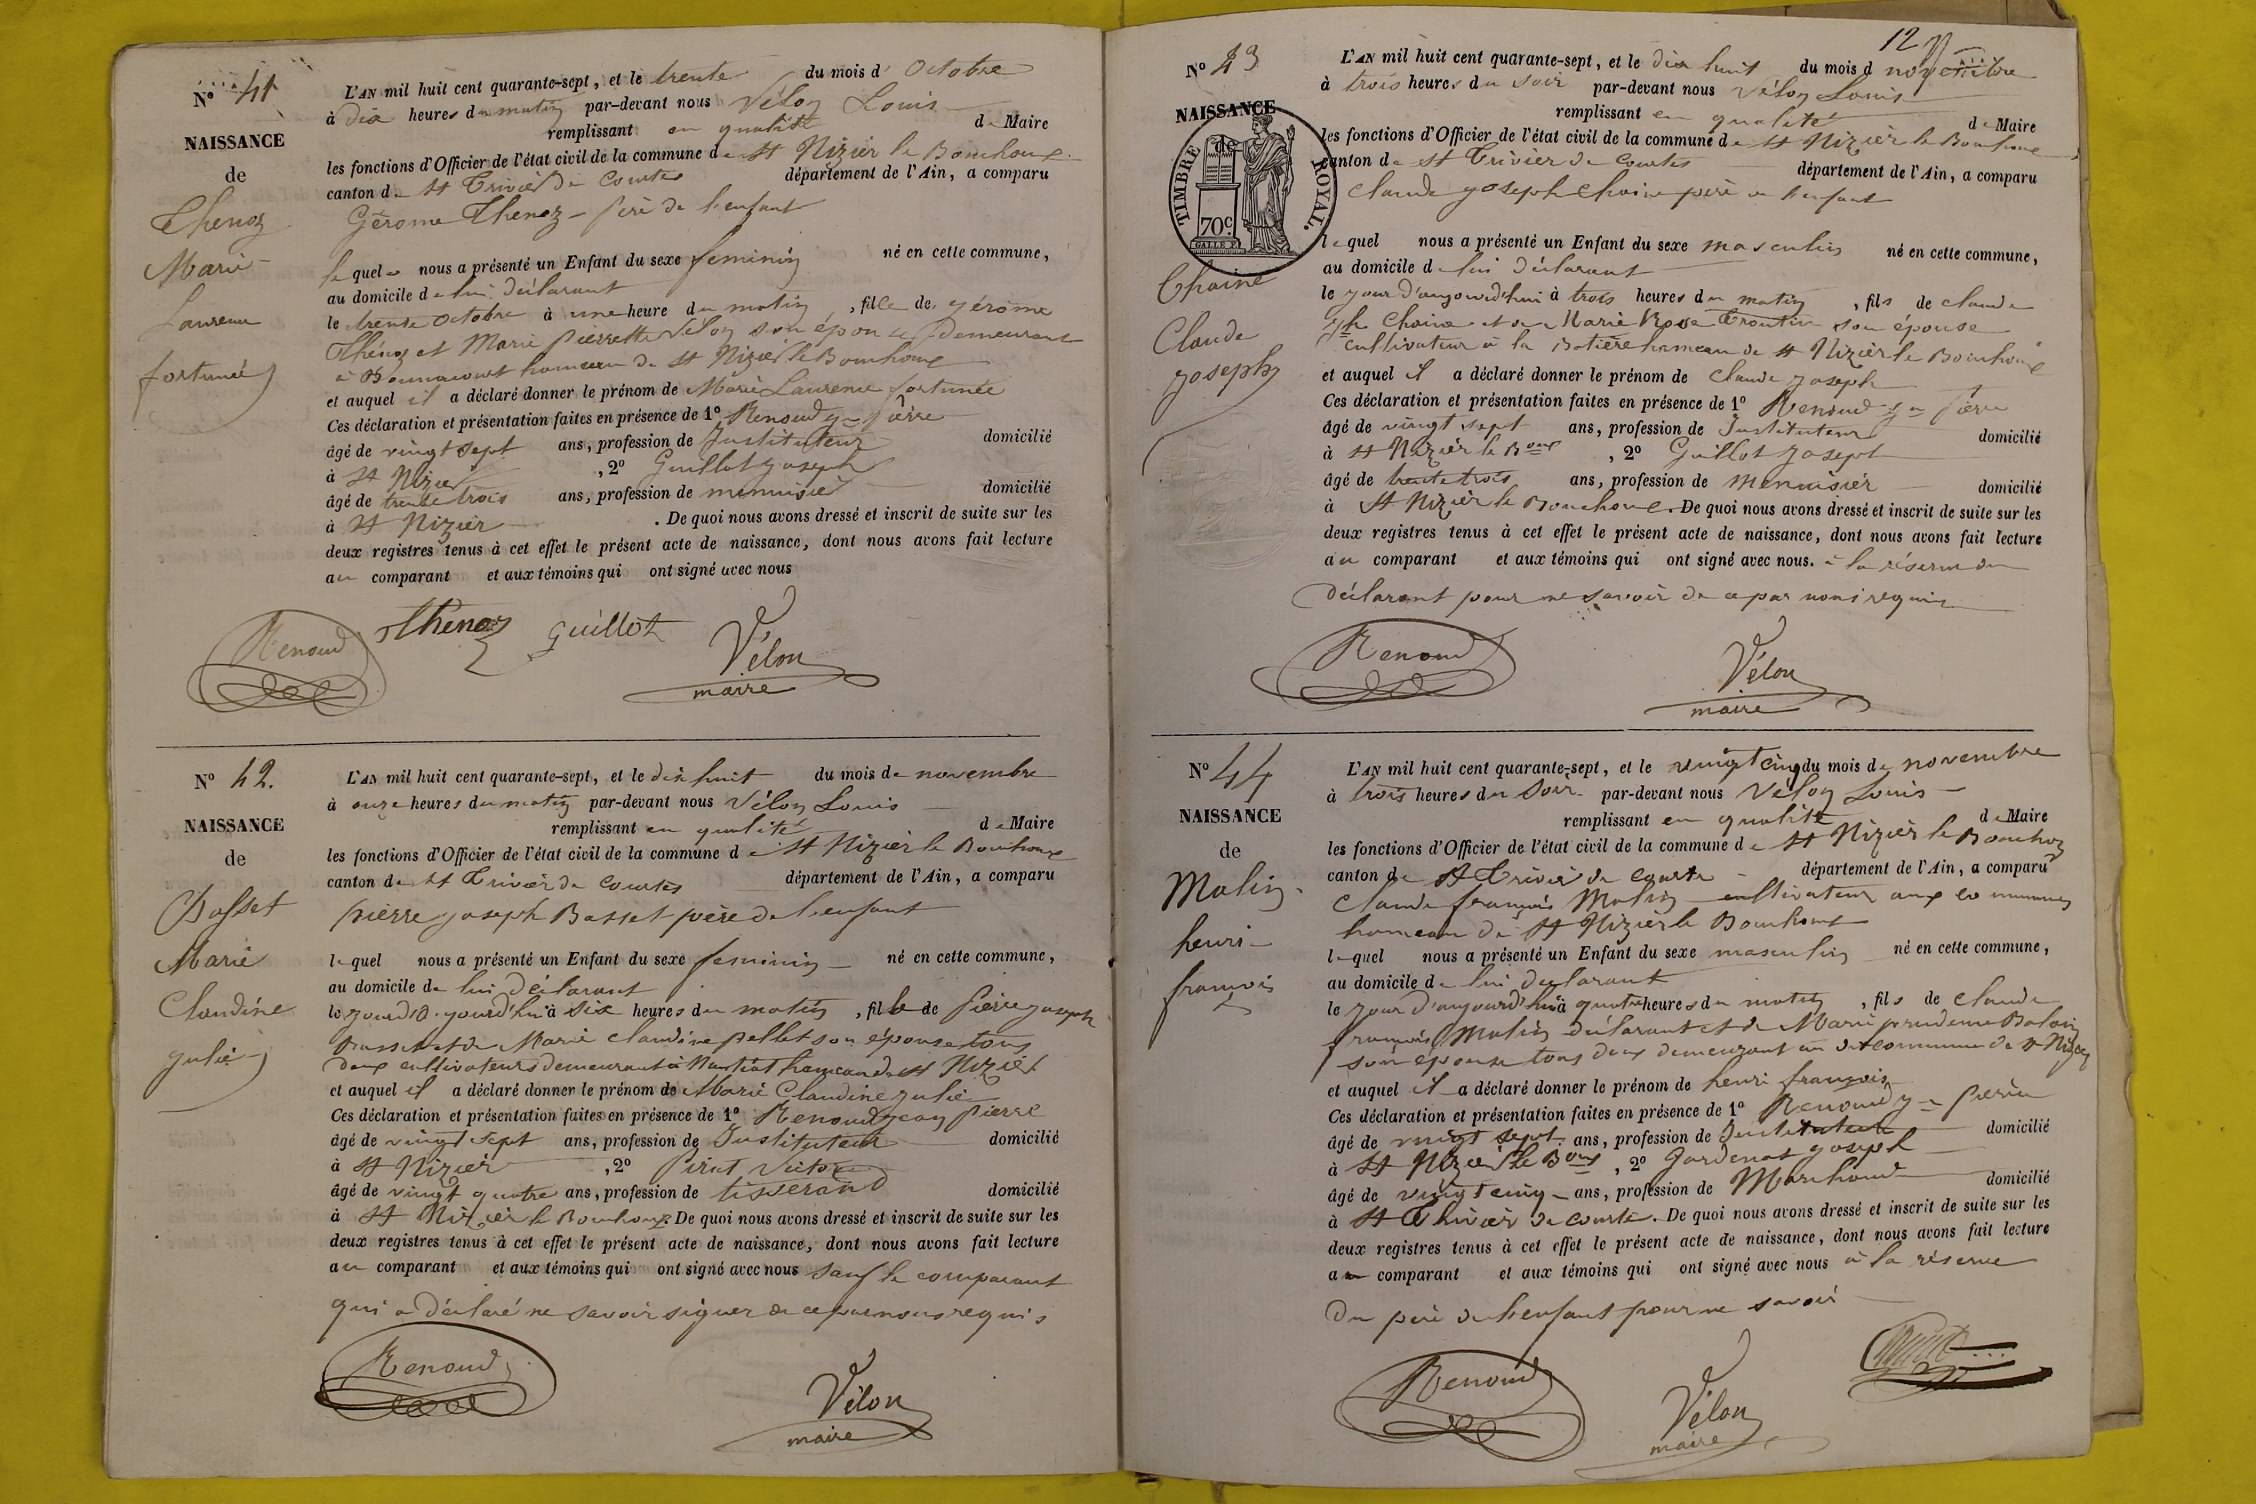 N° 41
NAISSANCE
de
Thenoz
Marie
Laurence
fortunée
L'AN mil huit cent quarante-sept, et le trente du mois d'Octobre
à dix heures du matin par-devant nous Vélon Louis
remplissant en qualité de Maire
les fonctions d'Officier de l'état civil de la commune de St Nizier le Bouchoux
canton de St Trivier de Courtes département de l'Ain, a comparu
Gérome Thenoz père de l'enfant
lequel nous a présenté un Enfant du sexe feminin né en cette commune,
au domicile de lui déclarant
le trente Octobre à une heure du matin, fille de gérôme
Thénoz et Marie pierrette Vélon son épouse demeurant
à hameau de St Nizier le Bouchoux
et auquel il a déclaré donner le prénom de Marie Laurence fortunée
Ces déclaration et présentation faites en présence de 1° Renoud jn pierre
âgé de vingt sept ans, profession de Instituteur domicilié
à St Nizier, 2° Guillot joseph
âgé de trente trois ans, profession de menuisier domicilié
à St Nizier. De quoi nous avons dressé et inscrit de suite sur les
deux registres tenus à cet effet le présent acte de naissance, dont nous avons fait lecture
au comparant et aux témoins qui ont signé avec nous
Renoud Thenoz Guillot Vélon
maire
N° 42.
NAISSANCE
de
Basset
Marie
Claudine
julie
L'AN mil huit cent quarante-sept, et le dix huit du mois de novembre
à onze heures du matin par-devant nous Vélon Louis
remplissant en qualité de Maire
les fonctions d'Officier de l'état civil de la commune de St Nizier le Bouchoux
canton de St Trivier de Courtes département de l'Ain, a comparu
pierre joseph Basset père de l'enfant
lequel nous a présenté un Enfant du sexe feminin né en cette commune,
au domicile de lui déclarant
le jourd'aujourd'hui à six heures du matin, fille de pierre joseph
Basset et de Marie claudine pellet son épouse tous
deux cultivateurs demeurant à hameau de St Nizier
et auquel il a déclaré donner le prénom de Marie Claudine julie
Ces déclaration et présentation faites en présence de 1° Renoud jean pierre
âgé de vingt sept ans, profession de Instituteur domicilié
à St Nizier, 2° Victor
âgé de vingt quatre ans, profession de tisserand domicilié
à St Nizier le Bouchoux. De quoi nous avons dressé et inscrit de suite sur les
deux registres tenus à cet effet le présent acte de naissance, dont nous avons fait lecture
au comparant et aux témoins qui ont signé avec nous sauf le comparant
qui a déclaré ne savoir signer de ce par nous requis
Renoud Vélon
maire
12
N° 43
NAISSANCE
de
TIMBRE ROYAL.
70c.
Chaine
Claude
joseph
L'AN mil huit cent quarante-sept, et le dix huit du mois d novembre
à trois heures du soir par-devant nous Vélon Louis
remplissant en qualité de Maire
les fonctions d'Officier de l'état civil de la commune de St Nizier le Bouchoux
canton de St Trivier de Courtes département de l'Ain, a comparu
Claude joseph Chaine père de l'enfant
lequel nous a présenté un Enfant du sexe masculin né en cette commune,
au domicile de lui déclarant
le jour d'aujourd'hui à trois heures du matin, fils de claude
jph Chaine et de Marie Rose son épouse
cultivateur à la hameau de St Nizier le Bouchoux
et auquel il a déclaré donner le prénom de Claude joseph
Ces déclaration et présentation faites en présence de 1° Renoud jn pierre
âgé de vingt sept ans, profession de Instituteur domicilié
à St Nizier le Boux, 2° Guillot joseph
âgé de trente trois ans, profession de menuisier domicilié
à St Nizier le Bouchoux. De quoi nous avons dressé et inscrit de suite sur les
deux registres tenus à cet effet le présent acte de naissance, dont nous avons fait lecture
au comparant et aux témoins qui ont signé avec nous. à la réserve du
déclarant pour ne savoir de ce par nous requis
Renoud Vélon
maire
N° 44
NAISSANCE
de
Molin
henri
françois
L'AN mil huit cent quarante-sept, et le vingt cinq du mois de novembre
à trois heures du soir par-devant nous Vélon Louis
remplissant en qualité de Maire
les fonctions d'Officier de l'état civil de la commune de St Nizier le Bouchoux
canton de St Trivier de courtes département de l'Ain, a comparu
Claude françois Molin cultivateur aux communes
hameau de St Nizier le Bouchoux
lequel nous a présenté un Enfant du sexe masculin né en cette commune,
au domicile de lui déclarant
le jour d'aujourd'hui à quatre heures du matin, fils de claude
françois Molin déclarant et de Marie prudence
son épouse tous deux demeurant en dite commune de St Nizier
et auquel il a déclaré donner le prénom de henri françois
Ces déclaration et présentation faites en présence de 1° Renoud jn pierre
âgé de vingt sept ans, profession de Instituteur domicilié
à St Nizier le Boux, 2° joseph
âgé de vingt cinq ans, profession de Marchand domicilié
à St Trivier de courtes. De quoi nous avons dressé et inscrit de suite sur les
deux registres tenus à cet effet le présent acte de naissance, dont nous avons fait lecture
au comparant et aux témoins qui ont signé avec nous à la réserve
du père de l'enfant pour ne savoir
Renoud Vélon
maire